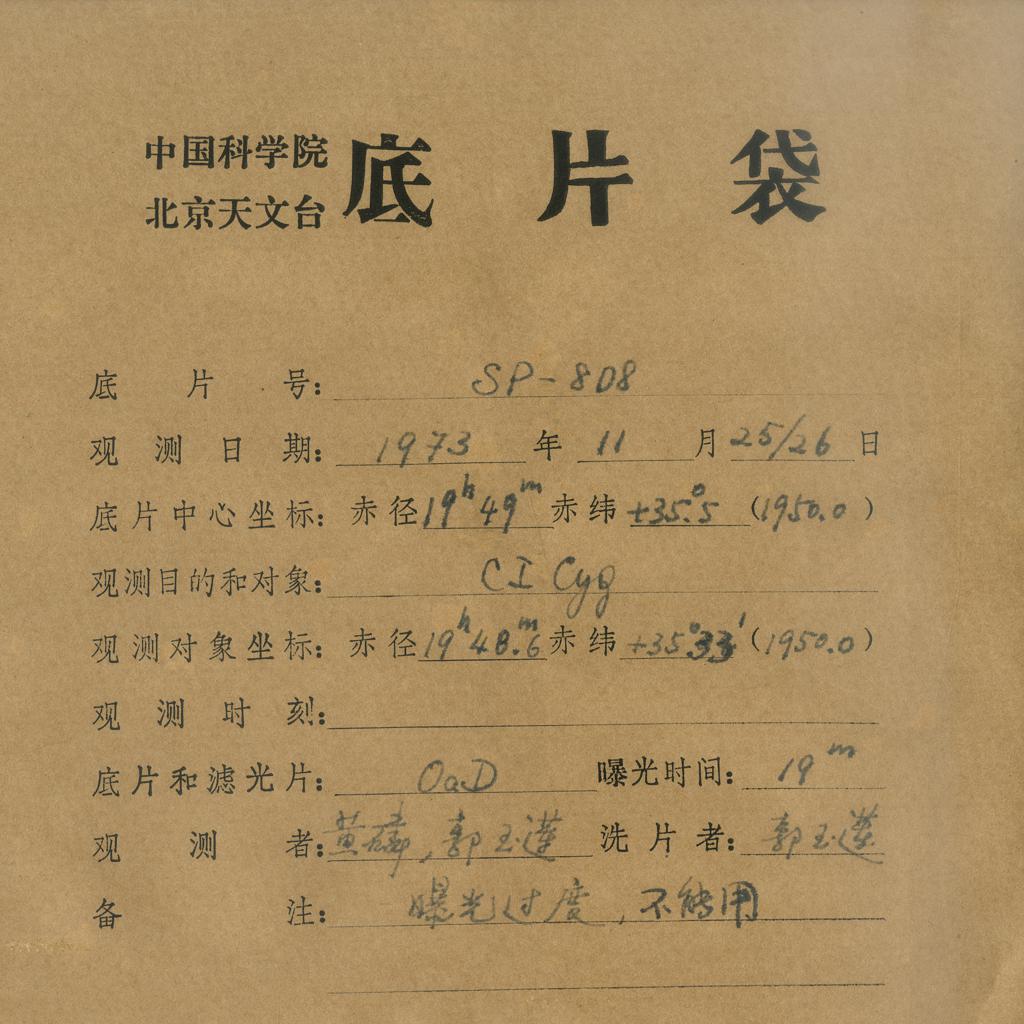 中国科学院
北京天文台
底片袋
底片号: SP-808
观测日期: 1973年11月25/26日
底片中心坐标: 赤径19h49m赤纬+35°.5(1950.0)
观测目的和对象: CI Cyg
观测对象坐标: 赤径19h48m.6赤纬+35°33′(1950.0)
观测时刻:
底片和滤光片: OaD 曝光时间: 19m
观测者: 黄磷,郭玉莲 洗片者: 郭玉莲
备注: 曝光过度,不能用